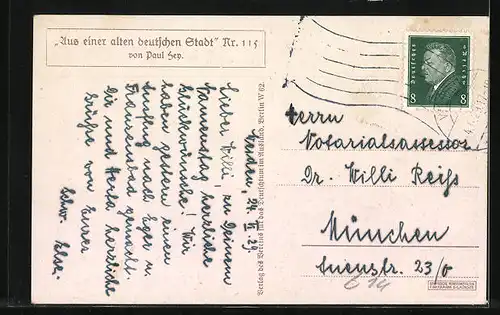 „Aus einer alten deutschen Stadt" Nr. 115
von Paul Hey.
Weiden, 24. II. 29.
Lieber Willi, zu Deinem
Namenstag herzliche
Glückwünsche! Wir
haben gestern einen
Ausflug nach Eger u.
Franzensbad gemacht.
Dir und Herta herzliche
Grüße von Eurer
Schw. Else.
Verlag des Vereins für das Deutschtum im Ausland, Berlin W 62.
Deutsches Reich
8 8
Herrn
Notariatsassessor
Dr. Willi Reiß
München
23/0